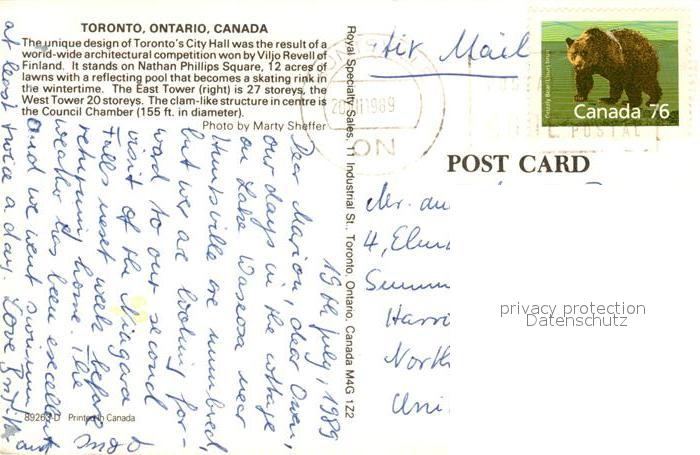 TORONTO, ONTARIO, CANADA
The unique design of Toronto's City Hall was the result of a
world-wide architectural competition won by Viljo Revell of
Finland. It stands on Nathan Phillips Square, 12 acres of
lawns with a reflecting pool that becomes a skating rink in
the wintertime. The East Tower (right) is 27 storeys, the
West Tower 20 storeys. The clam-like structure in centre is
the Council Chamber (155 ft. in diameter).
Photo by Marty Sheffer
19th July, 1989
Dear Marion, dear Owen,
our days in the cottage
on Lake Waseosa near
Huntsville are numbered,
but we are looking for-
word to our second
visit of the Niagara
Falls next week before
returning home. The
weather has been excellent
and we went swimming
at least twice a day. Love
89263-D Printed in Canada
Royal Specialty Sales, 11 Industrial St., Toronto, Ontario, Canada M4G 1Z2
Air Mail
1989
ON
POSTAL
Grizzly Bear
Canada 76
POST CARD
Mr. an
4, Elm
Summ
Harro
North
Uni
privacy protection
Datenschutz